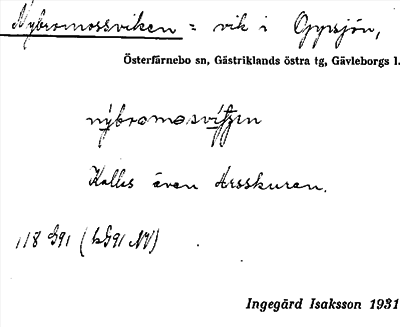 Nybromossviken = vik i Gysjön,
Österfärnebo sn, Gästriklands östra tg, Gävleborgs l.
Kallas även Arsskuren.
118 G91 (bG91 NV)
Ingegärd Isaksson 1931